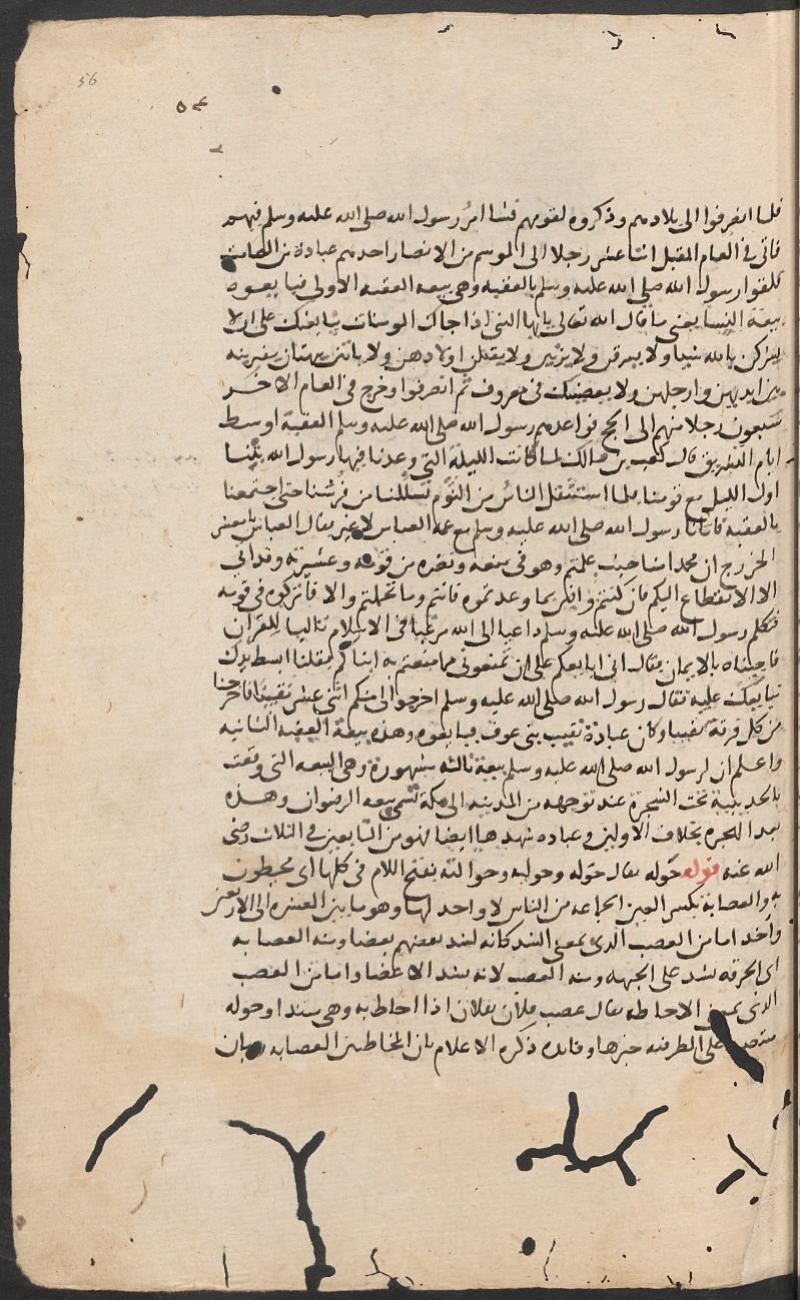 56
٥٤
فلما انصرفوا الى بلادهم وذكروه لقومهم فشا امر رسول الله صلى الله عليه وسلم فيهم
فاتى في العام المقبل اثنا عشر رجلا الى الموسم من الانصار احدهم عبادة بن الصامت
فلقوا رسول الله صلى الله عليه وسلم بالعقبه وهى بيعه العقبه الاولى فبايعوه
بيعة النسا يعنى ما قال الله تعالى يايها النبى اذا جاك المومنات يبايعنك على ان لا
يشركن بالله شيا ولا يسرقن ولا يزنين ولا يقتلن اولادهن ولا ياتين ببهتان يفترينه
بين ايديهن وارجلهن ولا يعصينك فى معروف ثم انصرفوا وخرج فى العام الاخر
سبعون رجلا منهم الى الحج فواعدهم رسول الله صلى الله عليه وسلم العقبة اوسط
ايام التشريق قال كعب بن مالك لما كانت الليلة التى وعدنا فيها رسول الله بتنا
اول الليل مع قومنا فلما استثقل الناس من النوم تسللنا من فرشنا حتى اجتمعنا
بالعقبه فاتانا رسول الله صلى الله عليه وسلم مع عمه العباس لا غير فقال العباس يا معشر
الخزرج ان محمدا منا حيث علمتم وهو فى منعه ونصره من قومه وعشيرته وقد ابى
الا الانقطاع اليكم فان كنتم وافين بما وعدتموه فانتم وما تحملتم والا فاتركوه فى قومه
فتكلم رسول الله صلى الله عليه وسلم داعيا الى الله مرغبا فى الاسلام تاليا للقران
فاجبناه بالايمان فقال انى ابايعكم على ان تمنعونى مما منعتم به ابناكم فقلنا ابسط يدك
نبايعك عليه فقال رسول الله صلى الله عليه وسلم اخرجوا الى منكم اثنى عشر نقيبا فاخرجنا
من كل فرقة نقيبا وكان عبادة نقيب بنى عوف فبايعوه وهذه بيعة العقبه الثانيه
واعلم ان لرسول الله صلى الله عليه وسلم بيعة ثالثه مشهورة وهى البيعه التى وقعت
بالحديبية تحت الشجرة عند توجهه من المدينه الى مكة تسمى بيعه الرضوان وهذه
بعد الهجره بخلاف الاولين وعباده شهدها ايضا فهو من المبايعين فى الثلاث رضى
الله عنه قوله حوله يقال حوله وحوليه وحواله بفتح اللام فى كلها اى محيطون
به والعصابة بكسر العين الجماعه من الناس لا واحد لها وهو ما بين العشره الى الاربعين
واخذ اما من العصب الذى بمعنى الشد كانه يشد بعضهم بعضا ومنه العصابه
اى الخرقه تشد على الجبهه ومنه العصب لانه يشد الاعضا واما من العصب
الذى بمعنى الاحاطه يقال عصب فلان بفلان اذا احاط به وهى مبتدا وحوله
على الظرفيه خبرها وفايده ذكره الاعلام بان المخاطبين العصابه وبان